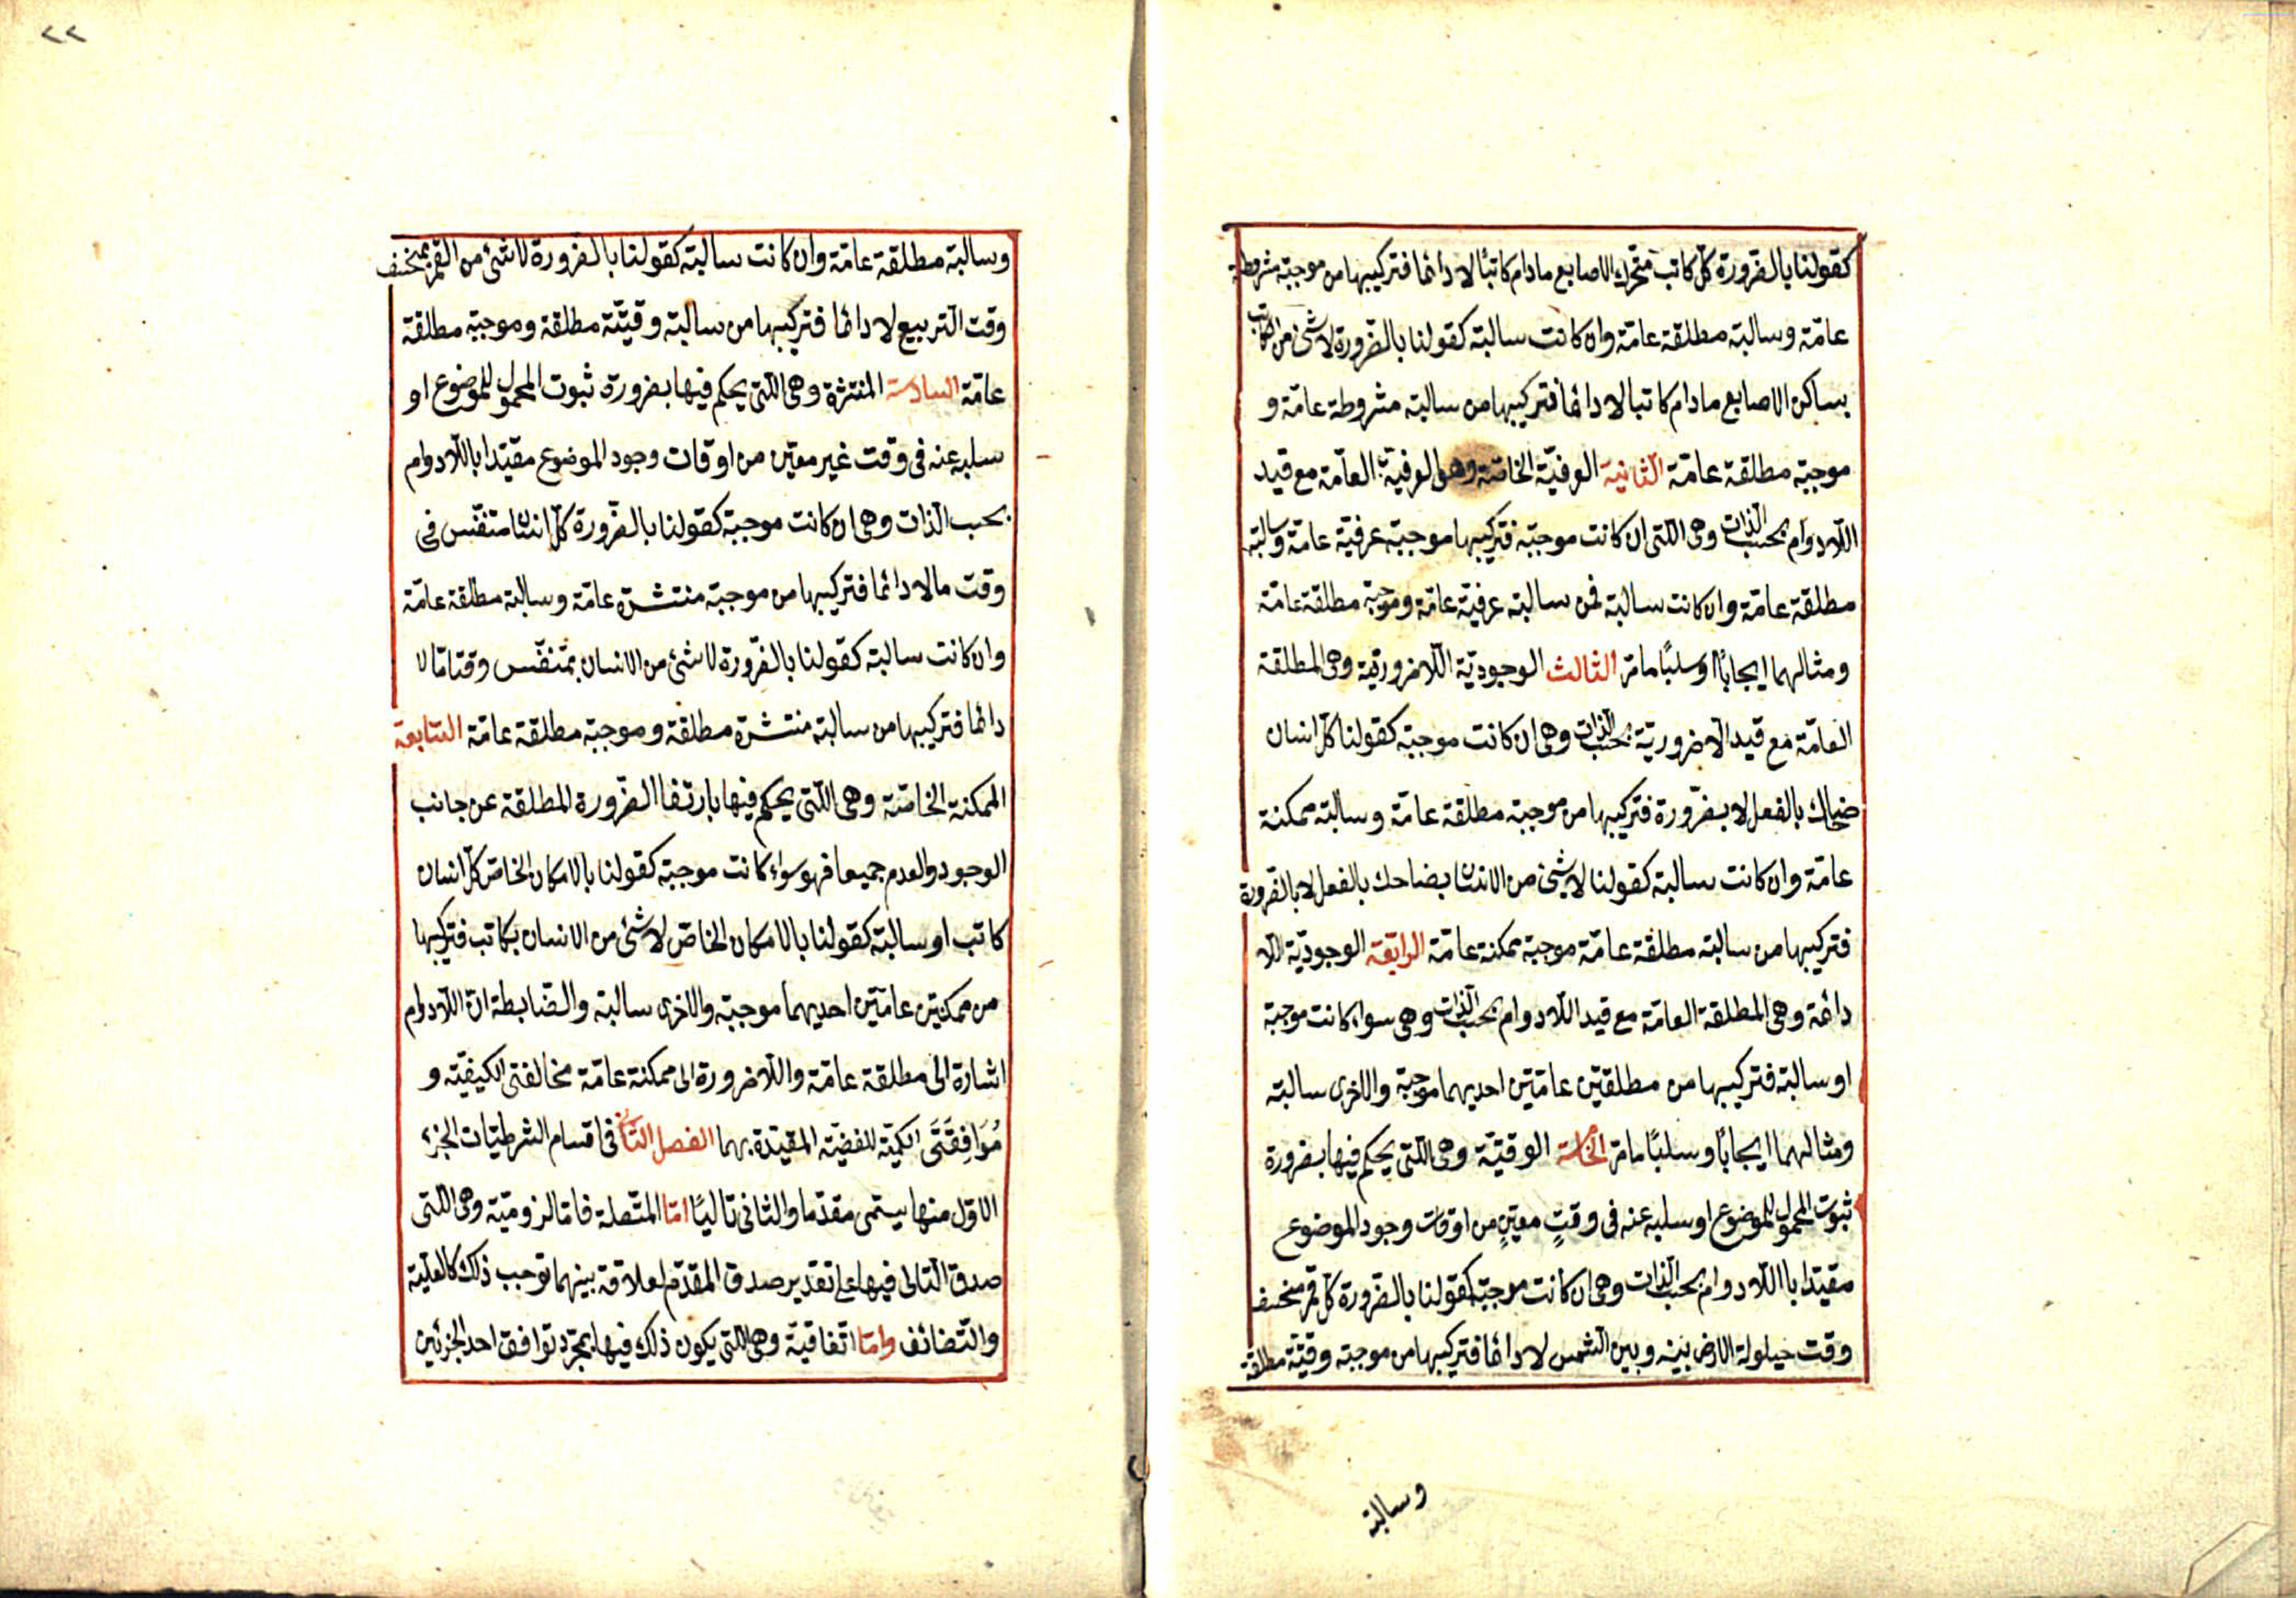 كقولنا بالضرورة كل كاتب متحرك الاصابع مادام كاتبًا لا دائما فتركيبها من موجبة مشروطة
عامّة وسالبة مطلقة عامّة وان كانت سالبة كقولنا بالضّرورة لا شئ من الكاتب
بساكن الاصابع مادام كاتبا لا دائما فتركيبها من سالبة مشروطة عامّة و
موجبة مطلقة عامّة الثانية العرفيّة الخاصّة وهى العرفيّة العامّة مع قيد
اللّادوام بحسب الذّات وهى اللتى ان كانت موجبة فتركيبها موجبة عرفيّة عامّة وسالبة
مطلقة عامّة وان كانت سالبة فمن سالبة عرفيّة عامّة وموجبة مطلقة عامّة
ومثالهما ايجابًا وسلبًا مامرّ الثالث الوجوديّة اللّاضروريّة وهى المطلقة
العامّة مع قيد الّاضروريّة بحسب الذّات وهى ان كانت موجبة كقولنا كلّ انسان
ضاحك بالفعل لا بضّرورة فتركيبها من موجبة مطلقة عامّة وسالبة ممكنة
عامّة وان كانت سالبة كقولنا لا شئ من الانسان بضاحك بالفعل لا بالضرورة
فتركيبها من سالبة مطلقة عامّة موجبة ممكنة عامّة الرابعة الوجوديّة اللا
دائمة وهى المطلقة العامّة مع قيد اللّادوام بحسب الذّات وهى سواء كانت موجبة
او سالبة فتركيبها من مطلقتين عامّتين احديهما موجبة والاخرى سالبة
ومثالهما ايجابًا وسلبًا مامرّ الخامسة الوقتيّة وهى اللّتى يحكم فيها بضرورة
ثبوت المحمول للموضوع او سلبه عنه فى وقتٍ معيّنٍ من اوقات وجود الموضوع
مقيّدا باللّادوام بحسب الذّات وهى ان كانت موجبة كقولنا بالضّرورة كلّ قمر منخسف
وقت حيلولة الارض بينه وبين الشّمس لا دائما فتركيبها من موجبة وقتيّة مطلقة
وسالبة
٢٢
وسالبة مطلقة عامّة وان كانت سالبة كقولنا بالضرورة لا شئ من القمر بمنخسف
وقت التّربيع لا دائما فتركيبها من سالبة وقتيّة مطلقة وموجبة مطلقة
عامّة السادسة المنتشرة وهى اللّتى يحكم فيها بضرورة ثبوت المحمول للموضوع او
سلبه عنه فى وقت غير معيّن من اوقات وجود الموضوع مقيّدا باللّادوام
بحسب الّذات وهى ان كانت موجبة كقولنا بالضّرورة كلّ انسان متنفّس فى
وقت ما لا دائما فتركيبها من موجبة منتشرّة عامّة وسالبة مطلقة عامّة
وان كانت سالبة كقولنا بالضّرورة لا شئ من الانسان بمتنفّس وقتاما لا
دائما فتركيبها من سالبة منتشرّة مطلقة وموجبة مطلقة عامّة السّابعة
الممكنة الخاصّة وهى اللّتى يحكم فيها بارتفا الضّرورة المطلقة عن جانب
الوجود والعدم جميعا فهو سواء كانت موجبة كقولنا بالامكان الخاصّ كلّ انسان
كاتب او سالبة كقولنا بالامكان الخاصّ لا شئ من الانسان بكاتب فتركيبها
من ممكنتين عامّتين احديهما موجبة والاخرى سالبة والضّابطة انّ اللّادوام
اشارة الى مطلقة عامّة واللّاضرورة الى ممكنة عامّة مخالفتى الكيفيّة و
مُوَافِقَتَى الكميّة للقضيّة المقيّدة بهما الفصل الثّانى فى اقسام الشرطيّات الجزء
الاوّل منها يسمّى مقدّما والثانى تاليًا امّا المتّصلة فامّا لزوميّة وهى اللّتى
صدق التّالى فيها على تقدير صدق المقدّم لعلاقة بينهما توجب ذلك كالعلّية
والتّضائف وامّا اتّفاقيّة وهى اللّتى يكون ذلك فيها بمجرّد توافق احد الجزئين